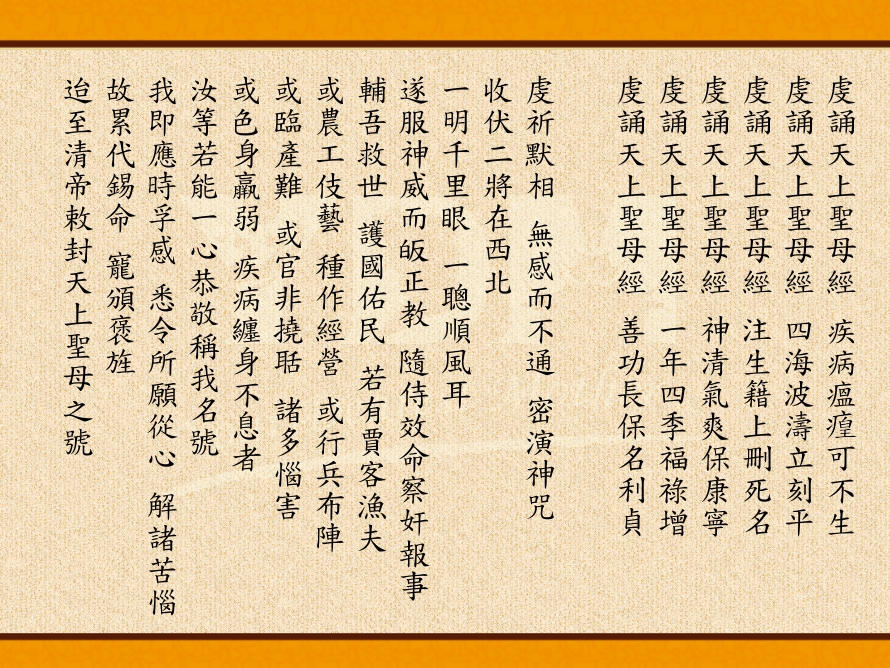 虔誦天上聖母經 疾病瘟瘴可不生
虔誦天上聖母經 四海波濤立刻平
虔誦天上聖母經 注生籍上刪死名
虔誦天上聖母經 神清氣爽保康寧
虔誦天上聖母經 一年四季福祿增
虔誦天上聖母經 善功長保名利貞
虔祈默相 無感而不通 密演神咒
收伏二將在西北
一明千里眼 一聰順風耳
遂服神威而皈正教 隨侍效命察奸報事
輔吾救世 護國佑民 若有賈客漁夫
或農工伎藝 種作經營 或行兵布陣
或臨產難 或官非撓聒 諸多惱害
或色身羸弱 疾病纏身不息者
汝等若能一心恭敬稱我名號
我即應時孚感 悉令所願從心 解諸苦惱
故累代錫命 寵頒褒旌
迨至清帝敕封天上聖母之號